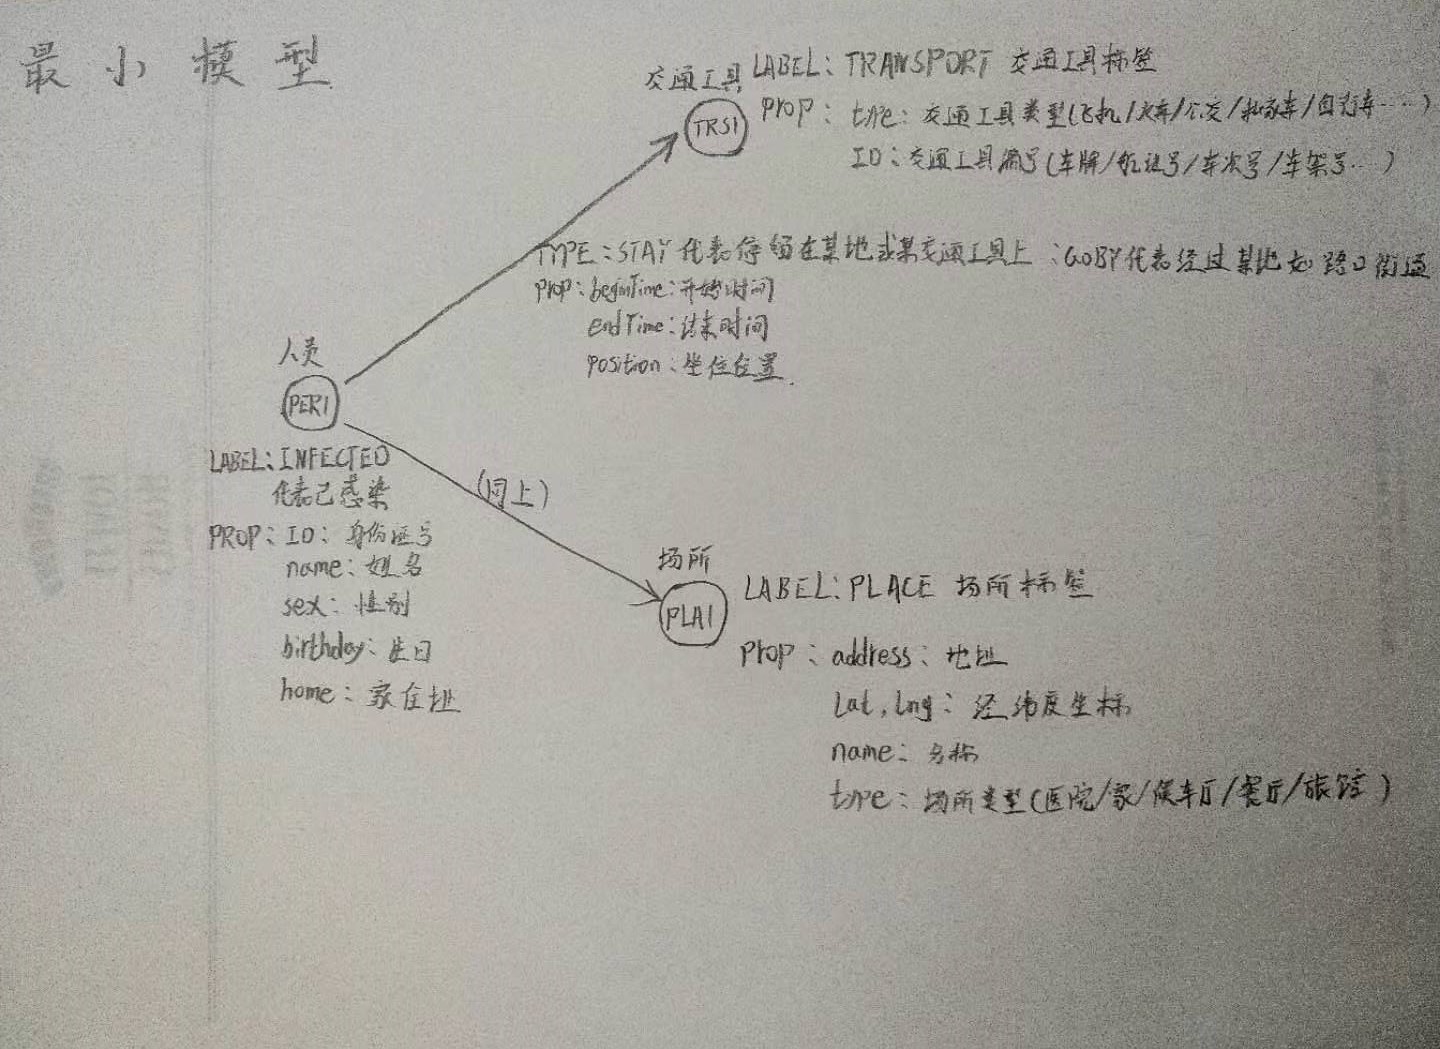 最小模型
交通工具
TRS1
LABEL: TRANSPORT 交通工具标签
prop: type: 交通工具类型(飞机/火车/公交/私家车/自行车……)
ID: 交通工具编号(车牌/航班号/车次号/车架号…)
TYPE: STAY 代表停留在某地或某交通工具上 ; GOBY代表经过某地如路口街道
prop: beginTime: 开始时间
endTime: 结束时间
position: 坐位位置.
人员
PER1
LABEL: INFECTED
代表已感染
PROP: ID: 身份证号
name: 姓名
sex: 性别
birthday: 生日
home: 家住址
(同上)
场所
PLA1
LABEL: PLACE 场所标签
prop: address: 地址
lat, lng: 经纬度坐标
name: 名称
type: 场所类型(医院/家/候车厅/餐厅/旅馆)